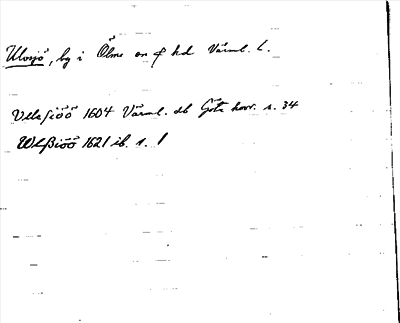 Ulvsjö, by i Ölme sn o hd Värml. l.
Ullsiöö 1604 Värml. db Göta hovr. s. 34
Wlßiöö 1621 ib. s. 1